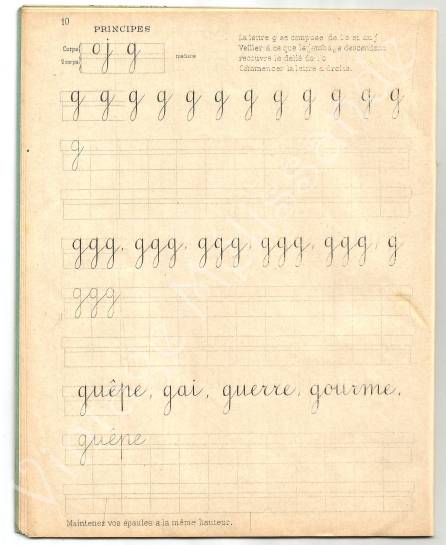 10
PRINCIPES
La lettre g se compose de l'o et du j
Veiller à ce que le jambage descendant
recouvre le délié de l'o
Commencer la lettre à droite.
Corps
o j g
g g g g g g g g g g g g
g
ggg, ggg, ggg, ggg, ggg, g
ggg
guêpe, gai, guerre, gourme,
guêpe
Maintenez vos épaules à la même hauteur.